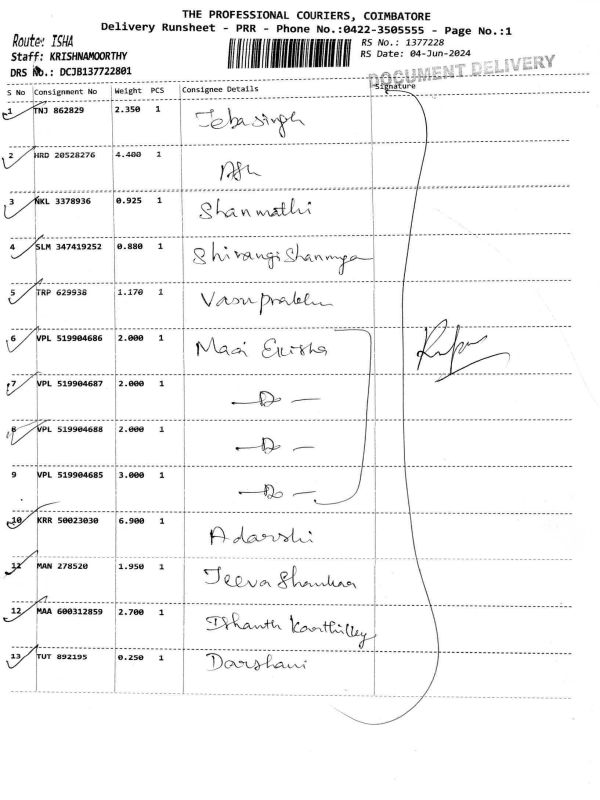 THE PROFESSIONAL COURIERS, COIMBATORE
Delivery Runsheet - PRR - Phone No.:0422-3505555 - Page No.:1
Route: ISHA
RS No.: 1377228
Staff: KRISHNAMOORTHY
RS Date: 04-Jun-2024
DRS No.: DCJB137722801
DOCUMENT DELIVERY
S No Consignment No Weight PCS Consignee Details Signature
1 TNJ 862829 2.350 1 Jebasingh
2 HRD 20528276 4.400 1
3 NKL 3378936 0.925 1 Shanmathi
4 SLM 347419252 0.880 1 Shivangi Shanmuga
5 TRP 629938 1.170 1 Vasu prabhu
6 VPL 519904686 2.000 1
7 VPL 519904687 2.000 1 — Do —
8 VPL 519904688 2.000 1 — Do —
9 VPL 519904685 3.000 1 — Do —
10 KRR 50023030 6.900 1 Adarshi
11 MAN 278520 1.950 1 Jeeva Shankar
12 MAA 600312859 2.700 1 Ishanth
13 TUT 892195 0.250 1 Darshani